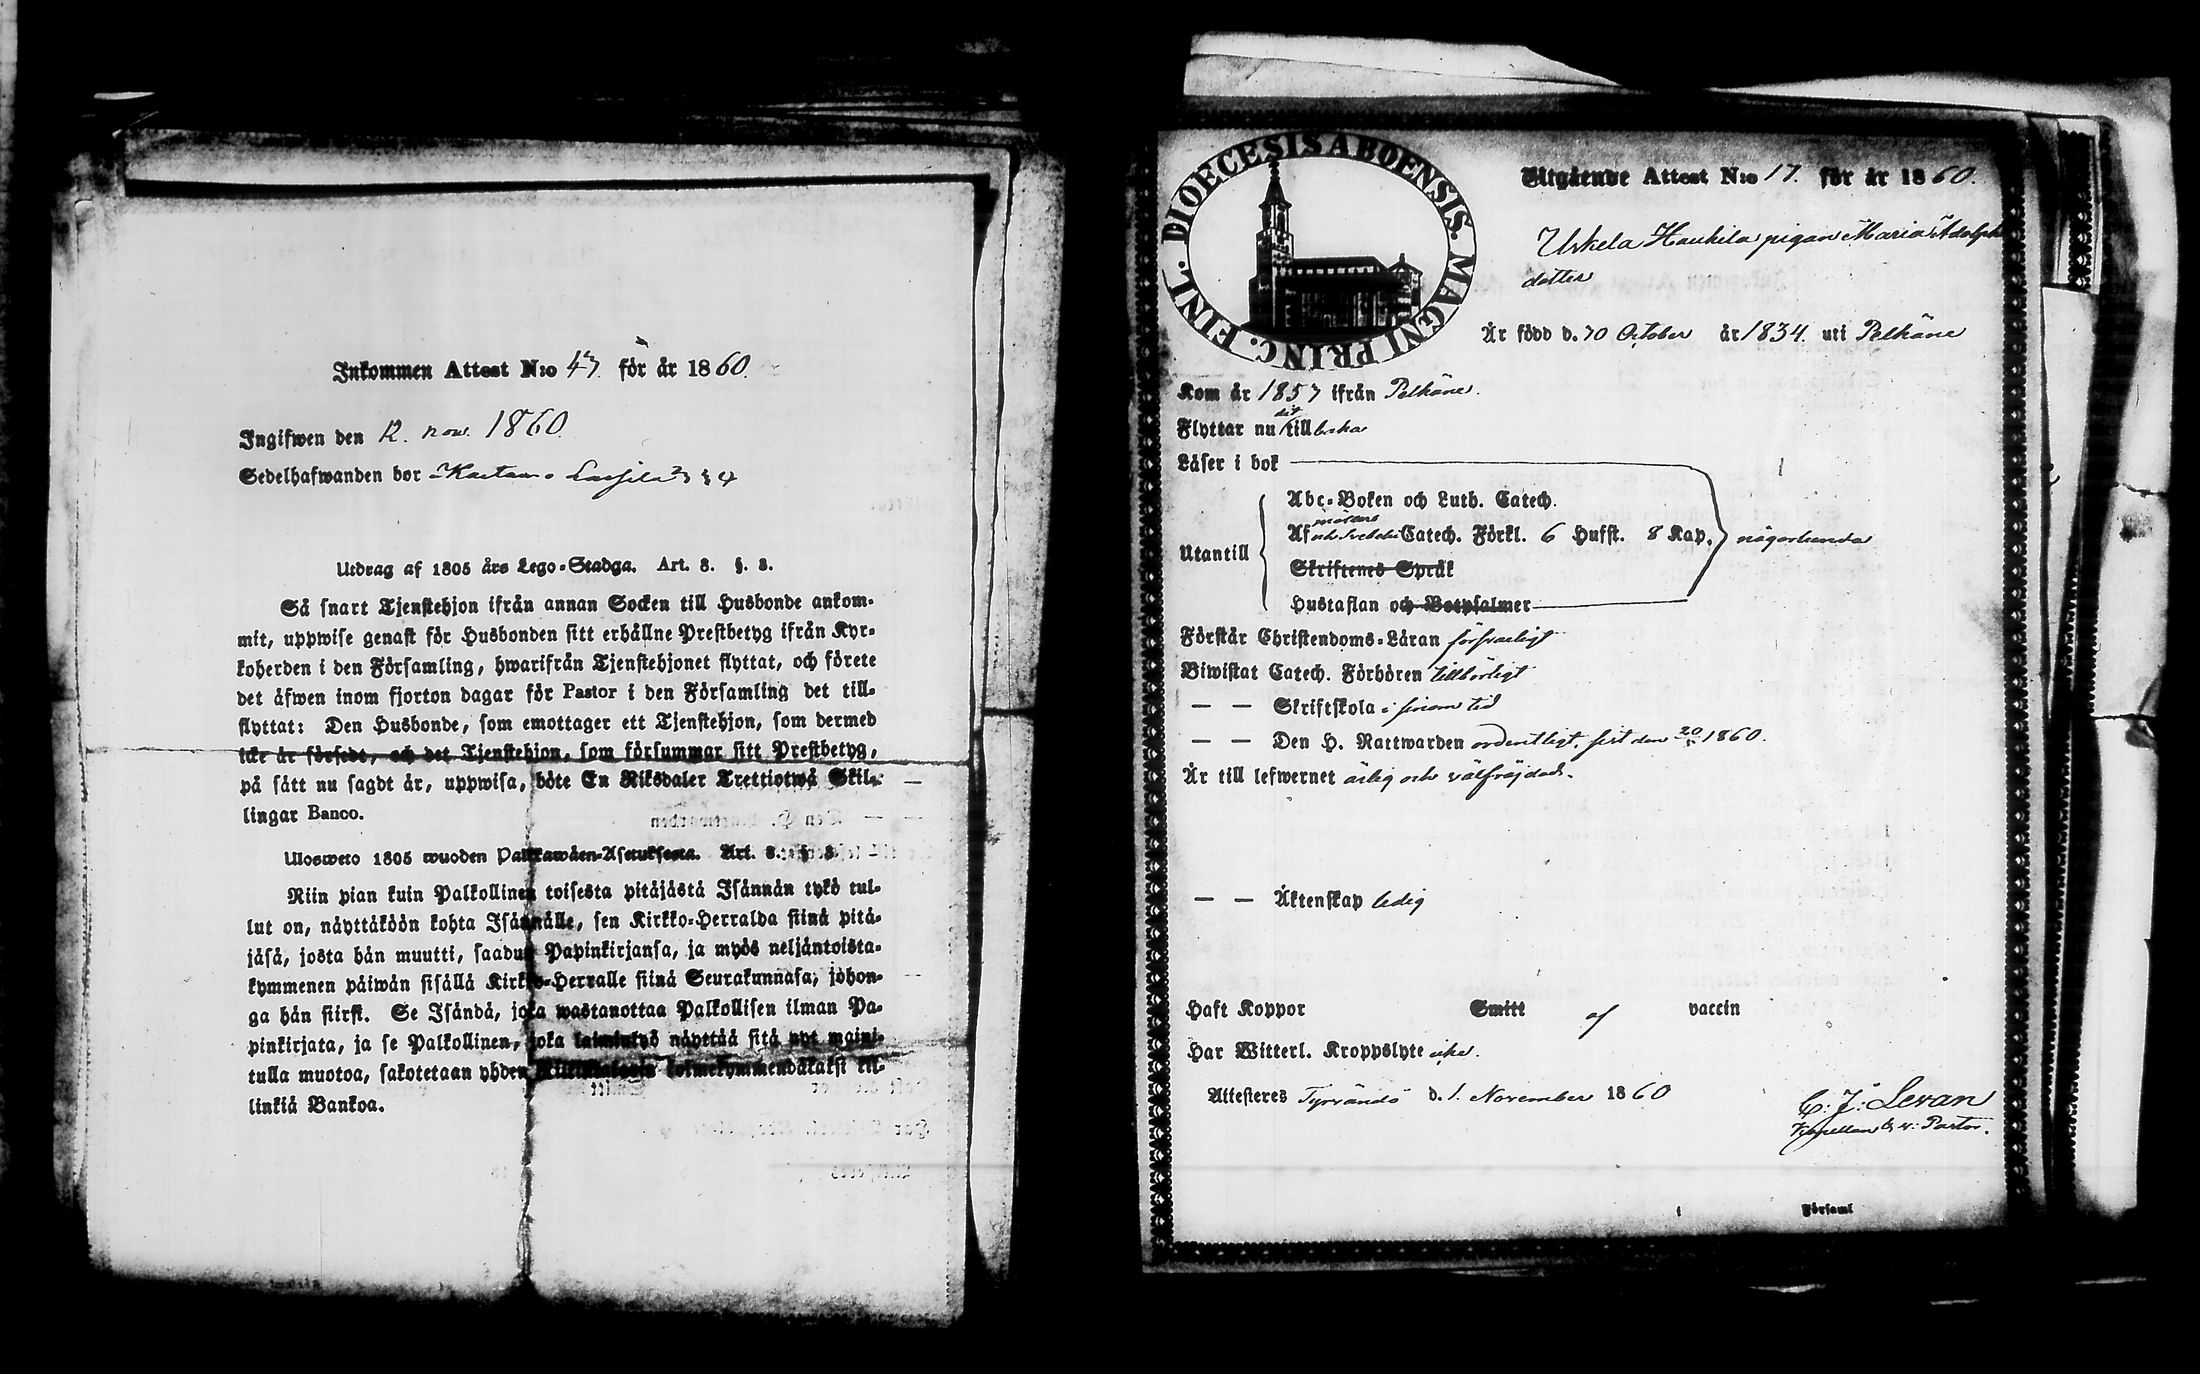 Inkommen Attest N:o 43. för år 1860.
Ingifwen den 12. nov. 1860.
Sedelhafwanden bor
Utdrag af 1805 års Lego-Stadga. Art. 8. §. 8.
Så snart Tjenstehjon ifrån annan Socken till Husbonde ankom-
mit, uppwise genast för Husbonden sitt erhållne Prestbetyg ifrån Kyr-
koherden i den Församling, hwarifrån Tjenstehjonet flyttat, och förete
det äfwen inom fjorton dagar för Pastor i den Församling det till-
flyttat: Den Husbonde, som emottager ett Tjenstehjon, som dermed
icke är försedt, och det Tjenstehjon, som försummar sitt Prestbetyg,
på sätt nu sagdt är, uppwisa, böte En Riksdaler Trettiotwå Skil-
lingar Banco.
Ulosweto 1805 wuoden Palkkawäen-Asetuksesta. Art. 8. §. 8.
Niin pian kuin Palkollinen toisesta pitäjästä Isännän tykö tul-
lut on, näyttäköön kohta Isännälle, sen Kirkko-Herralda siinä pitä-
jäsä, josta hän muutti, saadun Papinkirjansa, ja myös neljäntoista-
kymmenen päiwän sisällä Kirkko-Herralle siinä Seurakunnasa, johon-
ga hän siirst. Se Isändä, joka wastanottaa Palkollisen ilman Pa-
pinkirjata, ja se Palkollinen, joka laimintyö näyttää sitä nyt maini-
tulla muotoa, sakotetaan yhden Riikintalarin kolmekymmendäkaksi kil-
linkiä Bankoa.
DIOECESIS ABOENSIS. MAGNI PRINC. FINL.
Utgående Attest N:o 17. för år 1860.
Uskela Haukila pigan Maria Adolphs
dotter
Är född d. 10 October år 1834. uti Pelkäne
Kom år 1857 ifrån Pelkäne.
Flyttar nu dit tillbaka
Läser i bok
Abc-Boken och Luth. Catech.
Utantill
Af Catech. Förkl. 6 Hufst. 8 Kap. någorlunda
Skriftenes Språk
Hustaflan och Botpsalmer
Förstår Christendoms-Läran försvarligt
Biwistat Catech. Förhören tillbörligt
— — Skriftskola i sinom tid
— — Den H. Nattwarden ordentligt, sist den 1860.
Är till lefwernet ärlig och välfräjdad.
— — Äktenskap ledig
Haft Koppor Smitt af vaccin
Har Witterl. Kroppslyte icke.
Attesteres Tyrvändö d. 1. November 1860
C: J: Levan
Kapellan & v: Pastor.
Församl